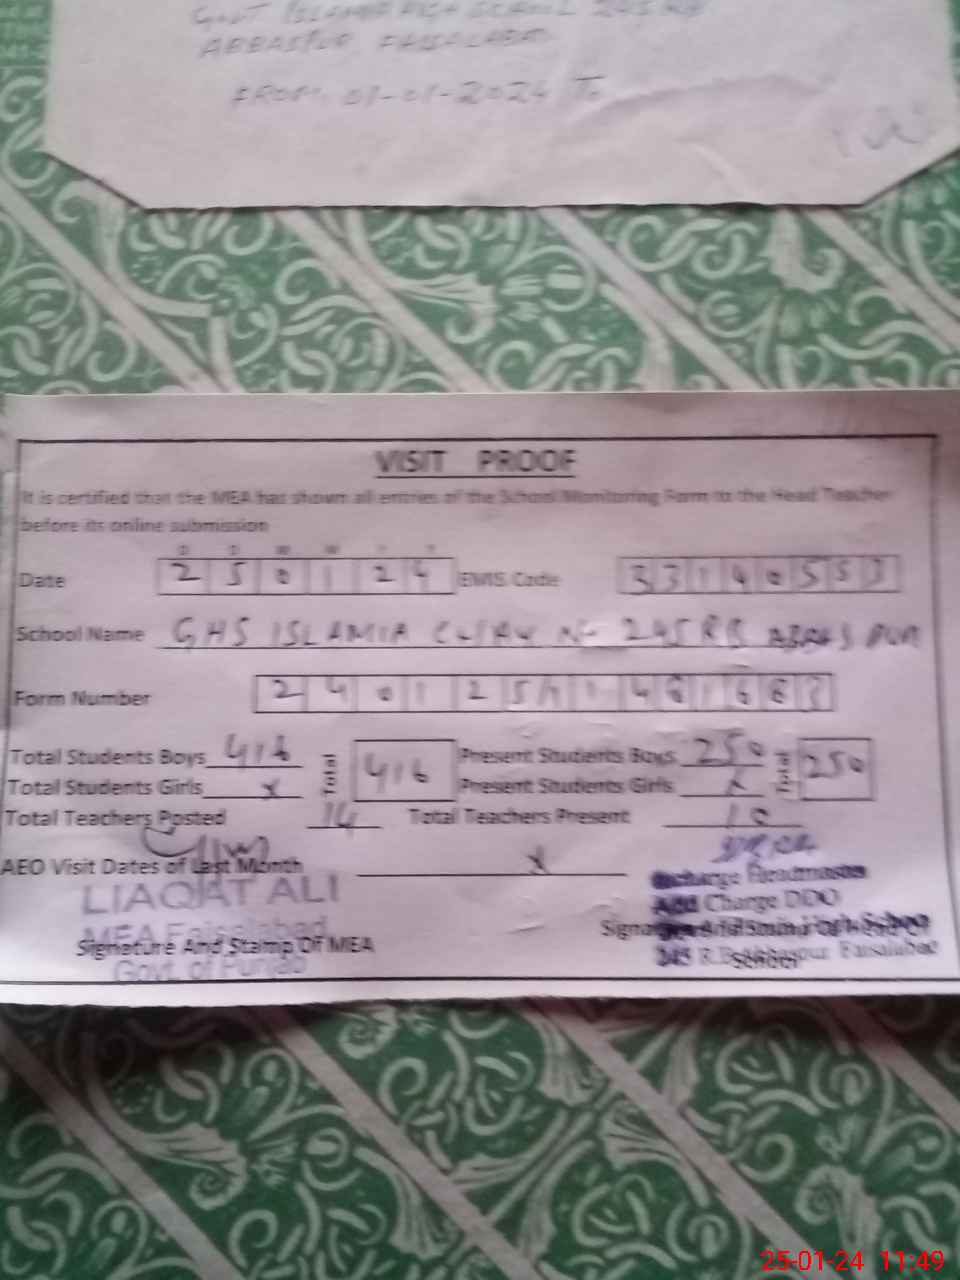 GOVT ISLAMIA HIGH SCHOOL 245 RB
ABBASPUR FAISALABAD
FROM 01-01-2024 To
VISIT PROOF
It is certified that the MEA has shown all entries of the School Monitoring Form to the Head Teacher
before its online submission
D D M M Y Y
Date 2 5 0 1 2 4 EMIS Code 3 3 1 4 0 5 5 3
School Name GHS ISLAMIA 245 RB ABBAS PUR
Form Number 2 4 0 1 2 5 1 1 4 8 1 6 8 3
Total Students Boys 416 Total 416 Present Students Boys 250 Total 250
Total Students Girls x Present Students Girls x
Total Teachers Posted 14 Total Teachers Present 10
AEO Visit Dates of Last Month x
LIAQAT ALI
MEA Faisalabad
Signature And Stamp Of MEA
Govt. of Punjab
Incharge Headmaster
Add Charge DDO
Signature And Stamp Of Head Of
School
245 R.B Faisalabad
25-01-24 11:49